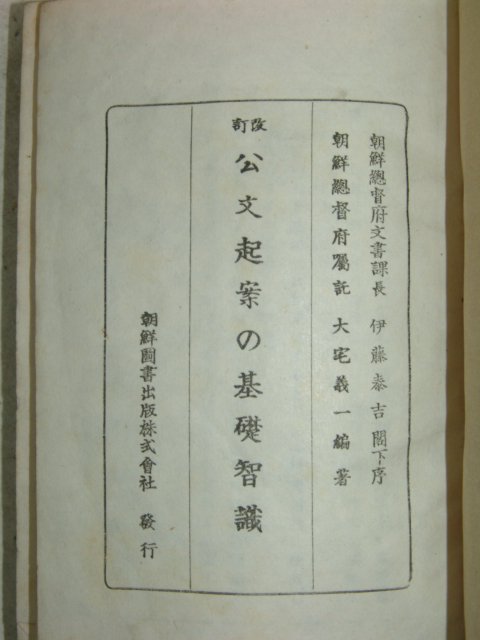 朝鮮總督府文書課長 伊藤泰吉 閣下序
朝鮮總督府囑託 大宅義一 編著
改訂
公文起案の基礎智識
朝鮮圖書出版株式會社 發行